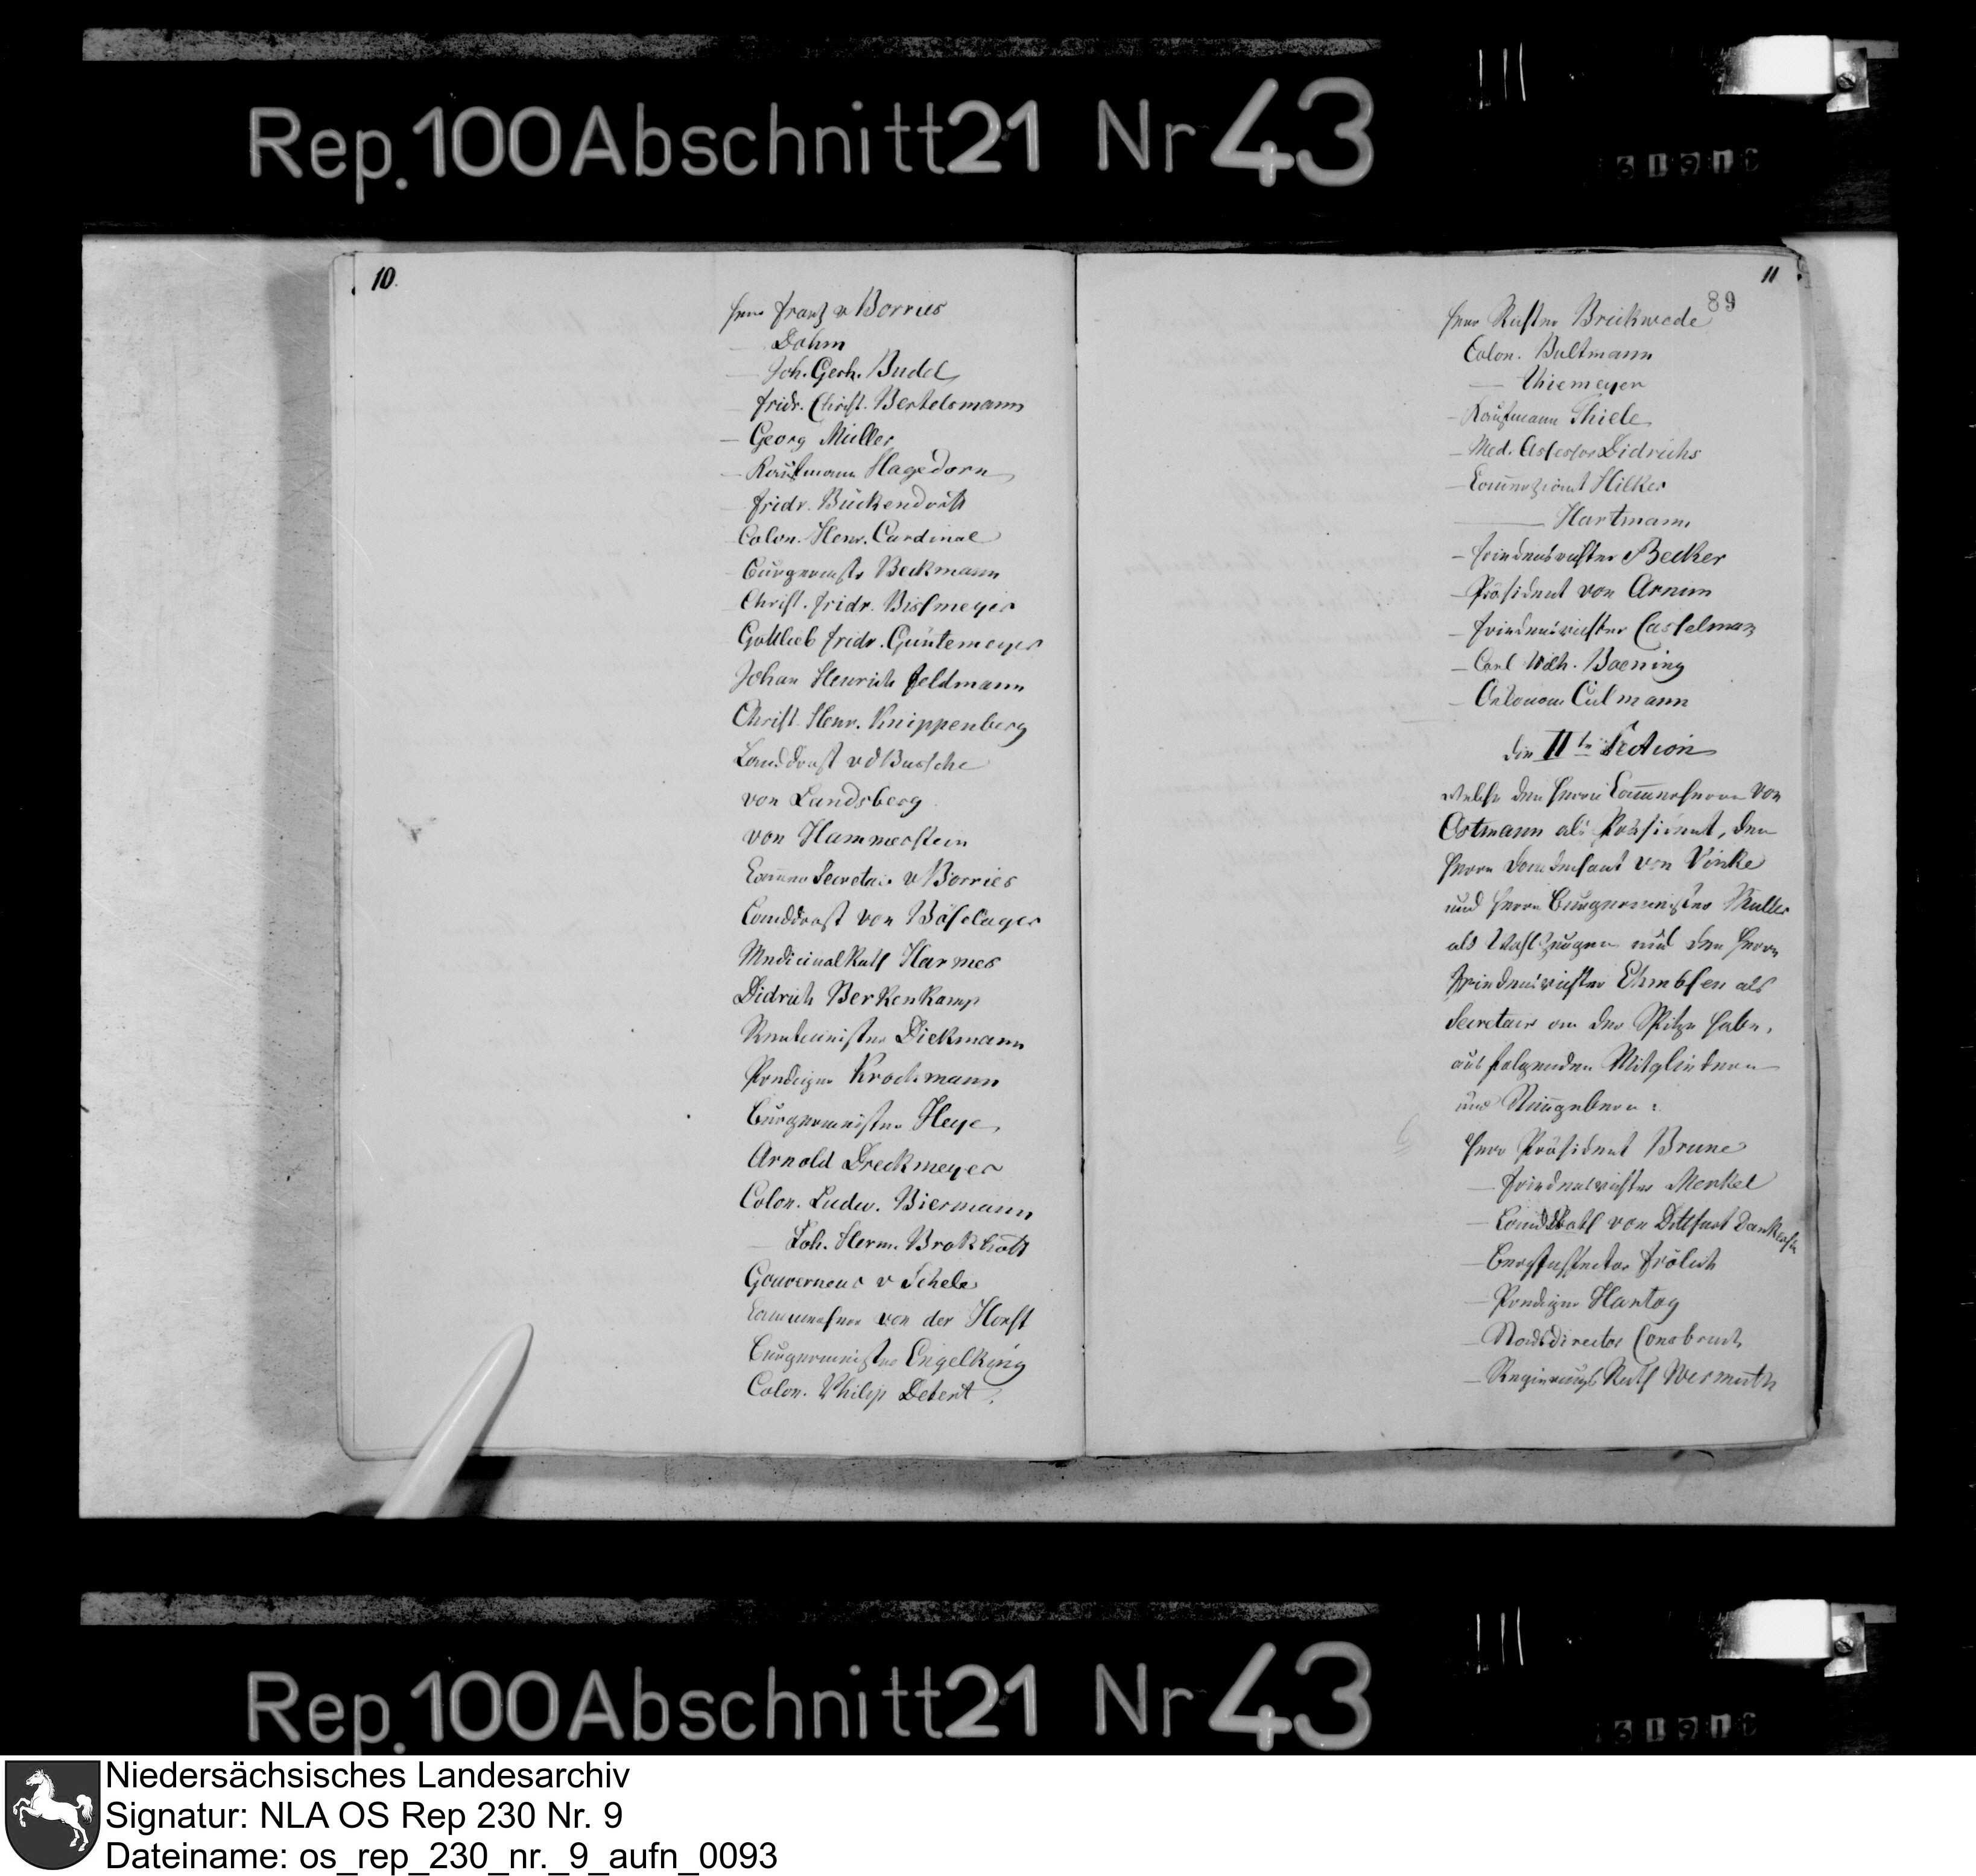 Rep. 100 Abschnitt 21 Nr 43
10.
Herr Frantz v Borries
— Dohm
— Joh. Gerh. Budde
— Fridr. Christ. Bertelsmann
— Georg Müller
— Kaufmann Hagedorn
— Fridr. Bückendorth
Colon. Henr. Cardinal
Burgermstr Beckmann
Christ. Fridr. Bissmeyer
Gottlieb Fridr. Güntemeyer
Johan Henrich Feldmann
Christ. Henr. Knippenberg
Landdrost v d Bussche
von Landsberg
von Hammerstein
Cammer Secretair v Borries
Landdrost von Böselager
Medicinal Rath Harmes
Didrich Berkenkamp
Rentemeister Diekmann
Prediger Krochmann
Burgermeister Heye
Arnold Dreckmeyer
Colon. Ludw. Biermann
— Joh. Herm. Brokhoth
Gouverneur v Schele
Cammerherr von der Horst
Burgermeister Engelking
Colon. Philip Detert
11
89
Herr Richter Brickwede
Colon. Bultmann
— Thiemeyer
— Kaufmann Thiele
— Med. Assessor Didrichs
— Commerziant Hilker
— Hartmann
— Friedensrichter Becker
— Präsident von Arnim
— Friedensrichter Casselman
— Carl Wilh. Boening
— Oekonom Culmann
die IIte Section
welche den Herrn Cammerherrn von
Ostmann als Präsident, den
Herrn Domdechant von Vinke
und Herrn Burgermeister Muller
als Wahlzeugen und den Herrn
Friedensrichter Ehmbsen als
Secretair an der Spitze habe,
aus folgenden Mitgliedern
und Stimmgebern:
Herr Präsident Brune
— Friedensrichter Menkel
— Landrath von Ditfurt Dankersen
— Berginspector Frölich
— Prediger Hartog
— Stadtdirector Consbruch
— Regierungs Rath Wermuth
Rep. 100 Abschnitt 21 Nr 43
Niedersächsisches Landesarchiv
Signatur: NLA OS Rep 230 Nr. 9
Dateiname: os_rep_230_nr._9_aufn_0093